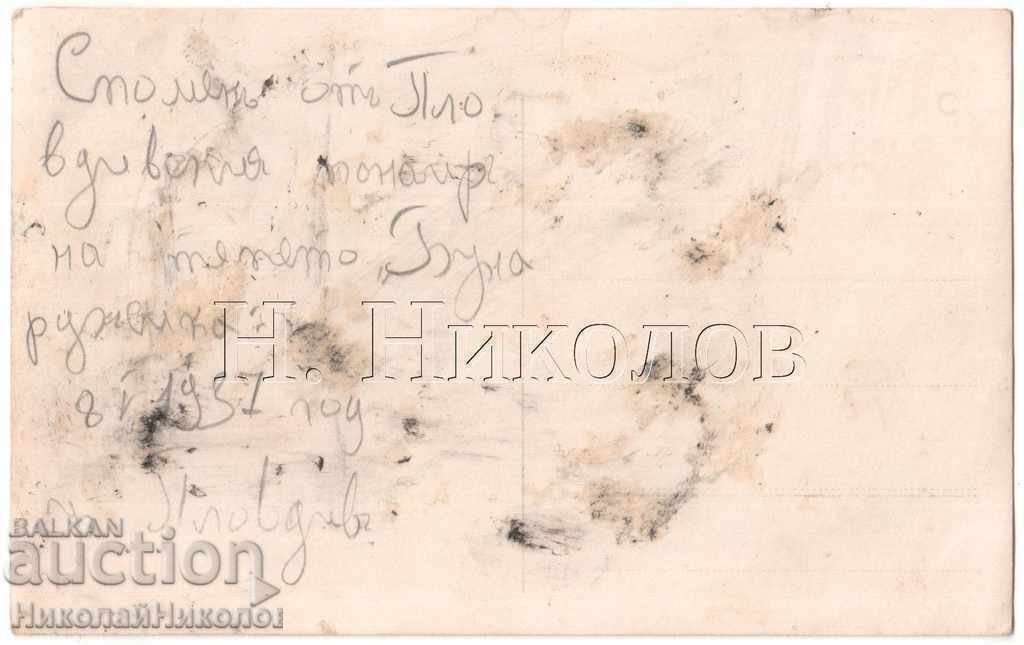 Споменъ отъ Пло
вдивския панаиръ
на тепето „Буна
рджика“
8 V 1937 год
Пловдивъ
Н. Николов
BALKAN
auction
НиколайНиколов